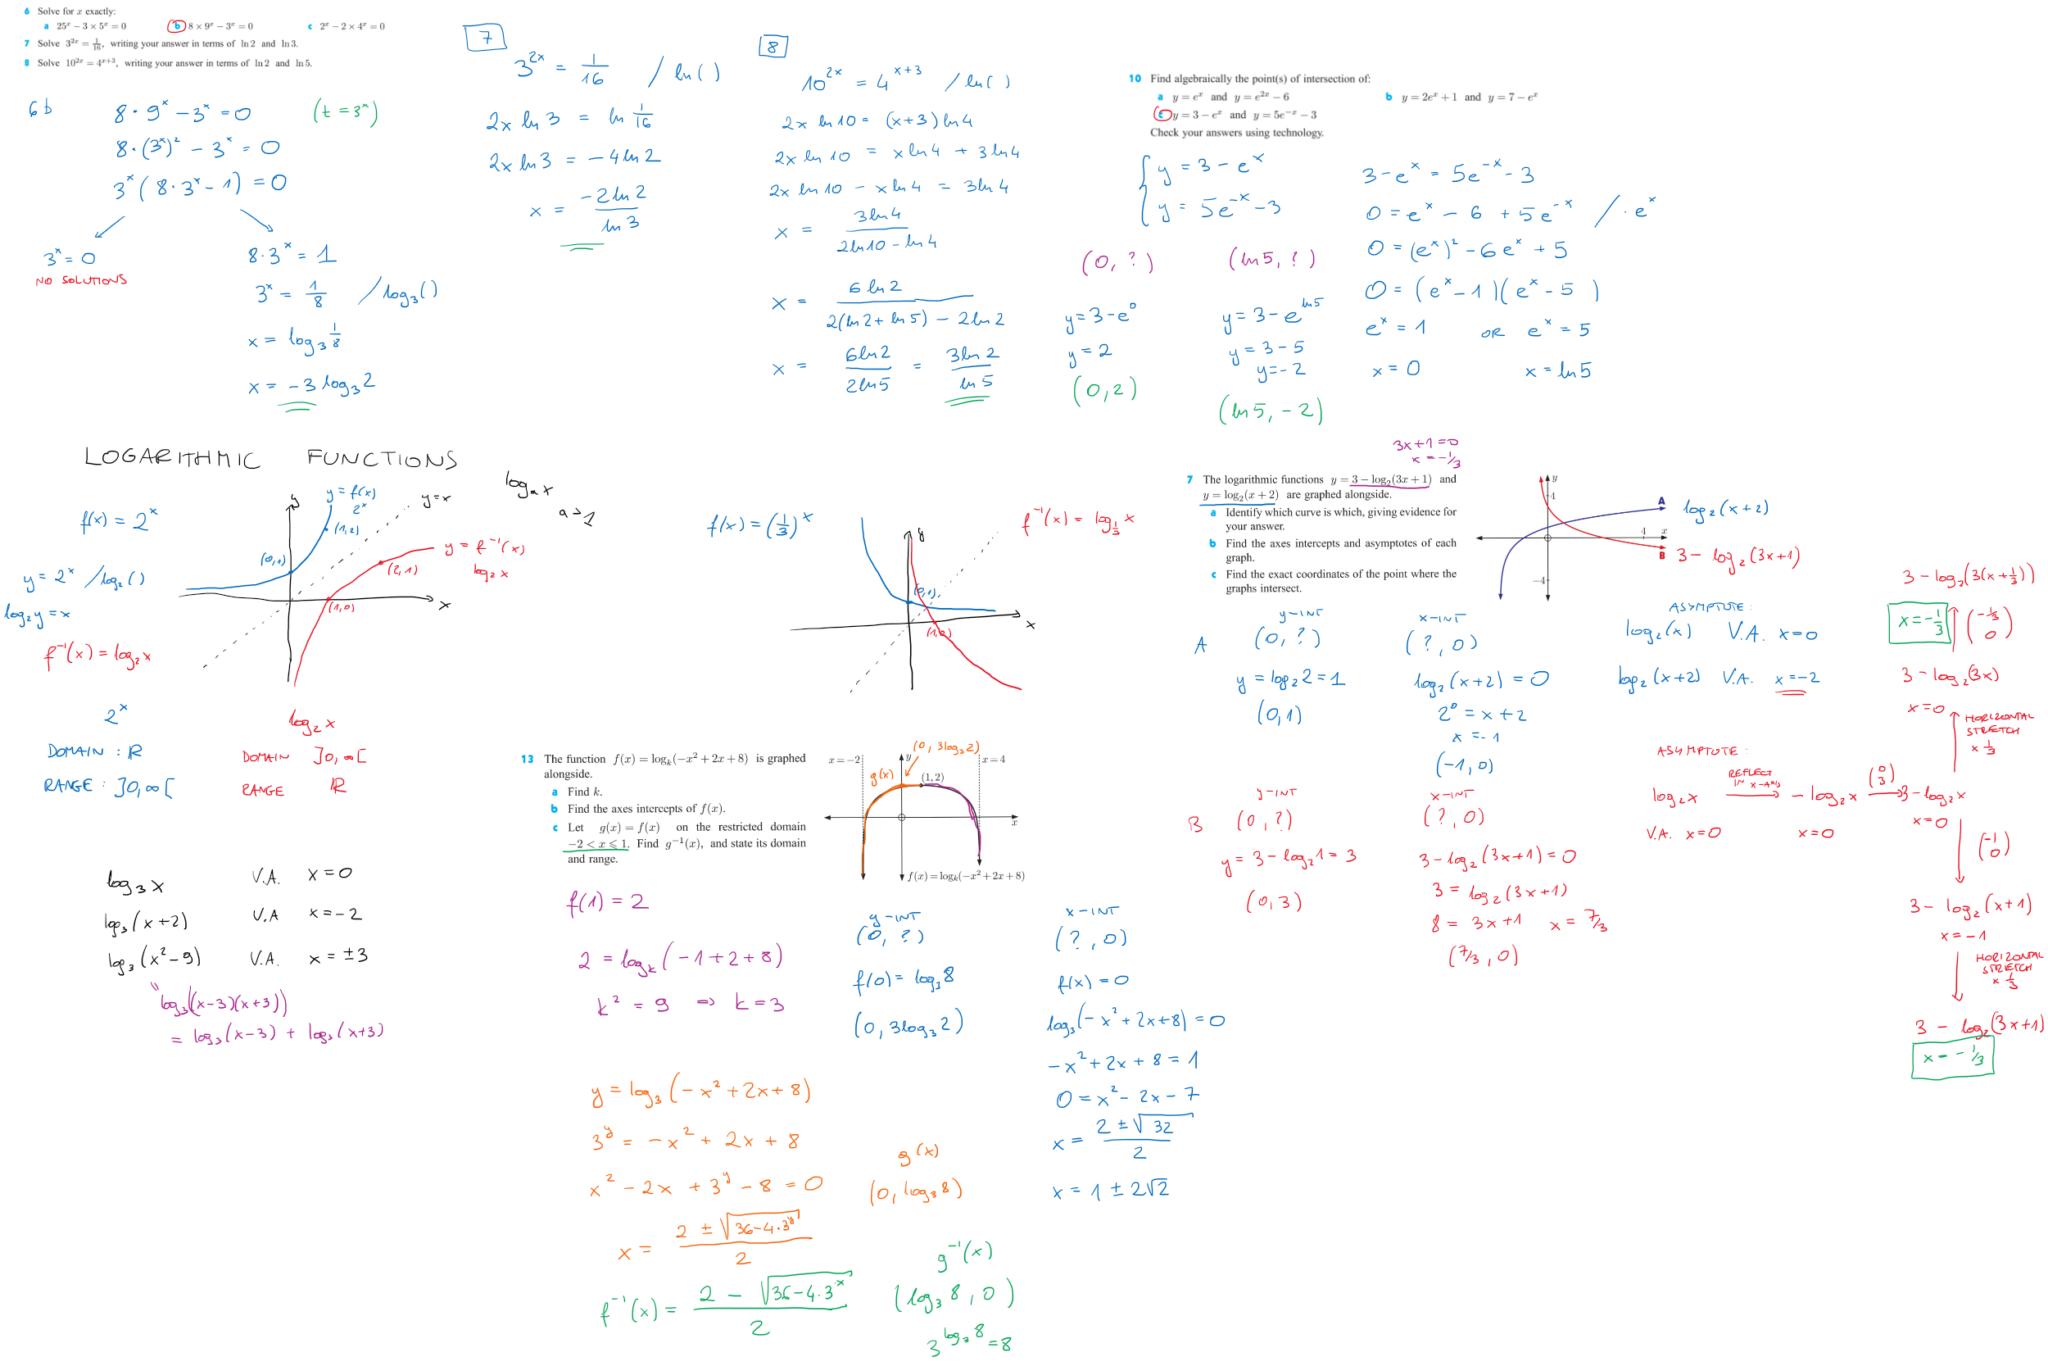 6 Solve for x exactly:
a 25ˣ − 3 × 5ˣ = 0   b 8 × 9ˣ − 3ˣ = 0   c 2ˣ − 2 × 4ˣ = 0
7 Solve 3²ˣ = 1/16, writing your answer in terms of ln 2 and ln 3.
8 Solve 10²ˣ = 4ˣ⁺³, writing your answer in terms of ln 2 and ln 5.
6 b
8·9ˣ − 3ˣ = 0   (t = 3ˣ)
8·(3ˣ)² − 3ˣ = 0
3ˣ(8·3ˣ − 1) = 0
3ˣ = 0
NO SOLUTIONS
8·3ˣ = 1
3ˣ = 1/8 /log₃()
x = log₃ 1/8
x = −3 log₃2
7
3²ˣ = 1/16 / ln()
2x ln 3 = ln 1/16
2x ln 3 = −4 ln 2
x = −2 ln 2 / ln 3
8
10²ˣ = 4ˣ⁺³ / ln()
2x ln 10 = (x+3) ln 4
2x ln 10 = x ln 4 + 3 ln 4
2x ln 10 − x ln 4 = 3 ln 4
x = 3 ln 4 / (2 ln 10 − ln 4)
x = 6 ln 2 / (2(ln 2 + ln 5) − 2 ln 2)
x = 6 ln 2 / 2 ln 5 = 3 ln 2 / ln 5
10 Find algebraically the point(s) of intersection of:
a y = eˣ and y = e²ˣ − 6   b y = 2eˣ + 1 and y = 7 − eˣ
c y = 3 − eˣ and y = 5e⁻ˣ − 3
Check your answers using technology.
y = 3 − eˣ
y = 5e⁻ˣ − 3
3 − eˣ = 5e⁻ˣ − 3
0 = eˣ − 6 + 5e⁻ˣ / · eˣ
0 = (eˣ)² − 6eˣ + 5
0 = (eˣ − 1)(eˣ − 5)
eˣ = 1 OR eˣ = 5
x = 0   x = ln 5
(0, ?)   (ln 5, ?)
y = 3 − e⁰
y = 2
(0, 2)
y = 3 − e^(ln 5)
y = 3 − 5
y = −2
(ln 5, −2)
LOGARITHMIC FUNCTIONS
f(x) = 2ˣ
y = 2ˣ /log₂()
log₂y = x
f⁻¹(x) = log₂x
y
y = f(x)
2ˣ
y = x
(0,1)
(1,2)
(2,1)
(1,0)
x
y = f⁻¹(x)
log₂x
logₐx
a > 1
2ˣ
DOMAIN : ℝ
RANGE : ]0, ∞[
log₂x
DOMAIN ]0, ∞[
RANGE ℝ
f(x) = (1/3)ˣ
y
f⁻¹(x) = log_(1/3) x
(0,1)
(1,0)
x
log₃x   V.A. x = 0
log₃(x+2)   V.A x = −2
log₃(x²−9)   V.A. x = ±3
log₃((x−3)(x+3))
= log₃(x−3) + log₃(x+3)
13 The function f(x) = logₖ(−x² + 2x + 8) is graphed
alongside.
a Find k.
b Find the axes intercepts of f(x).
c Let g(x) = f(x) on the restricted domain
−2 < x ⩽ 1. Find g⁻¹(x), and state its domain
and range.
(0, 3log₃2)
x = −2
y
x = 4
g(x)
(1, 2)
x
f(x) = logₖ(−x² + 2x + 8)
f(1) = 2
2 = logₖ(−1+2+8)
k² = 9 ⇒ k = 3
y-INT
(0, ?)
f(0) = log₃8
(0, 3log₃2)
x-INT
(?, 0)
f(x) = 0
log₃(−x²+2x+8) = 0
−x²+2x+8 = 1
0 = x² − 2x − 7
x = (2 ± √32) / 2
x = 1 ± 2√2
y = log₃(−x² + 2x + 8)
3ʸ = −x² + 2x + 8
x² − 2x + 3ʸ − 8 = 0
x = (2 ± √(36−4·3ʸ)) / 2
f⁻¹(x) = (2 − √(36−4·3ˣ)) / 2
g(x)
(0, log₃8)
g⁻¹(x)
(log₃8, 0)
3^(log₃8) = 8
3x+1=0
x = −1/3
7 The logarithmic functions y = 3 − log₂(3x + 1) and
y = log₂(x + 2) are graphed alongside.
a Identify which curve is which, giving evidence for
your answer.
b Find the axes intercepts and asymptotes of each
graph.
c Find the exact coordinates of the point where the
graphs intersect.
y
4
A
log₂(x+2)
4
x
B
3 − log₂(3x+1)
−4
A
y-INT
(0, ?)
y = log₂2 = 1
(0,1)
x-INT
(?, 0)
log₂(x+2) = 0
2⁰ = x+2
x = −1
(−1, 0)
ASYMPTOTE :
log₂(x)   V.A. x = 0
log₂(x+2)   V.A. x = −2
B
y-INT
(0, ?)
y = 3 − log₂1 = 3
(0, 3)
x-INT
(?, 0)
3 − log₂(3x+1) = 0
3 = log₂(3x+1)
8 = 3x+1   x = 7/3
(7/3, 0)
ASYMPTOTE :
log₂x REFLECT IN x-AXIS − log₂x (0 3) 3 − log₂x
V.A. x = 0   x = 0   x = 0
3 − log₂(3(x+1/3))
x = −1/3
(−1/3 0)
3 − log₂(3x)
x = 0
HORIZONTAL
STRETCH
× 1/3
(−1 0)
3 − log₂(x+1)
x = −1
HORIZONTAL
STRETCH
× 1/3
3 − log₂(3x+1)
x = −1/3